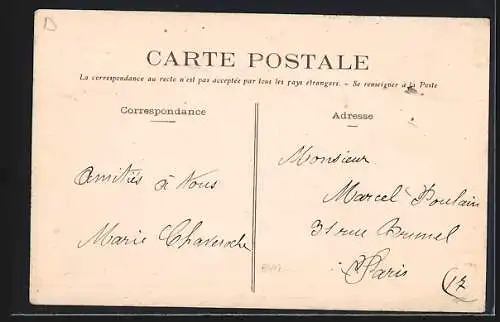 CARTE POSTALE
La correspondance au recto n'est pas acceptée par tous les pays étrangers. - Se renseigner à la Poste
Correspondance
Adresse
Amitiés à Vous
Marie Chaveroche
Monsieur
Marcel Poulain
31 rue
Paris
17